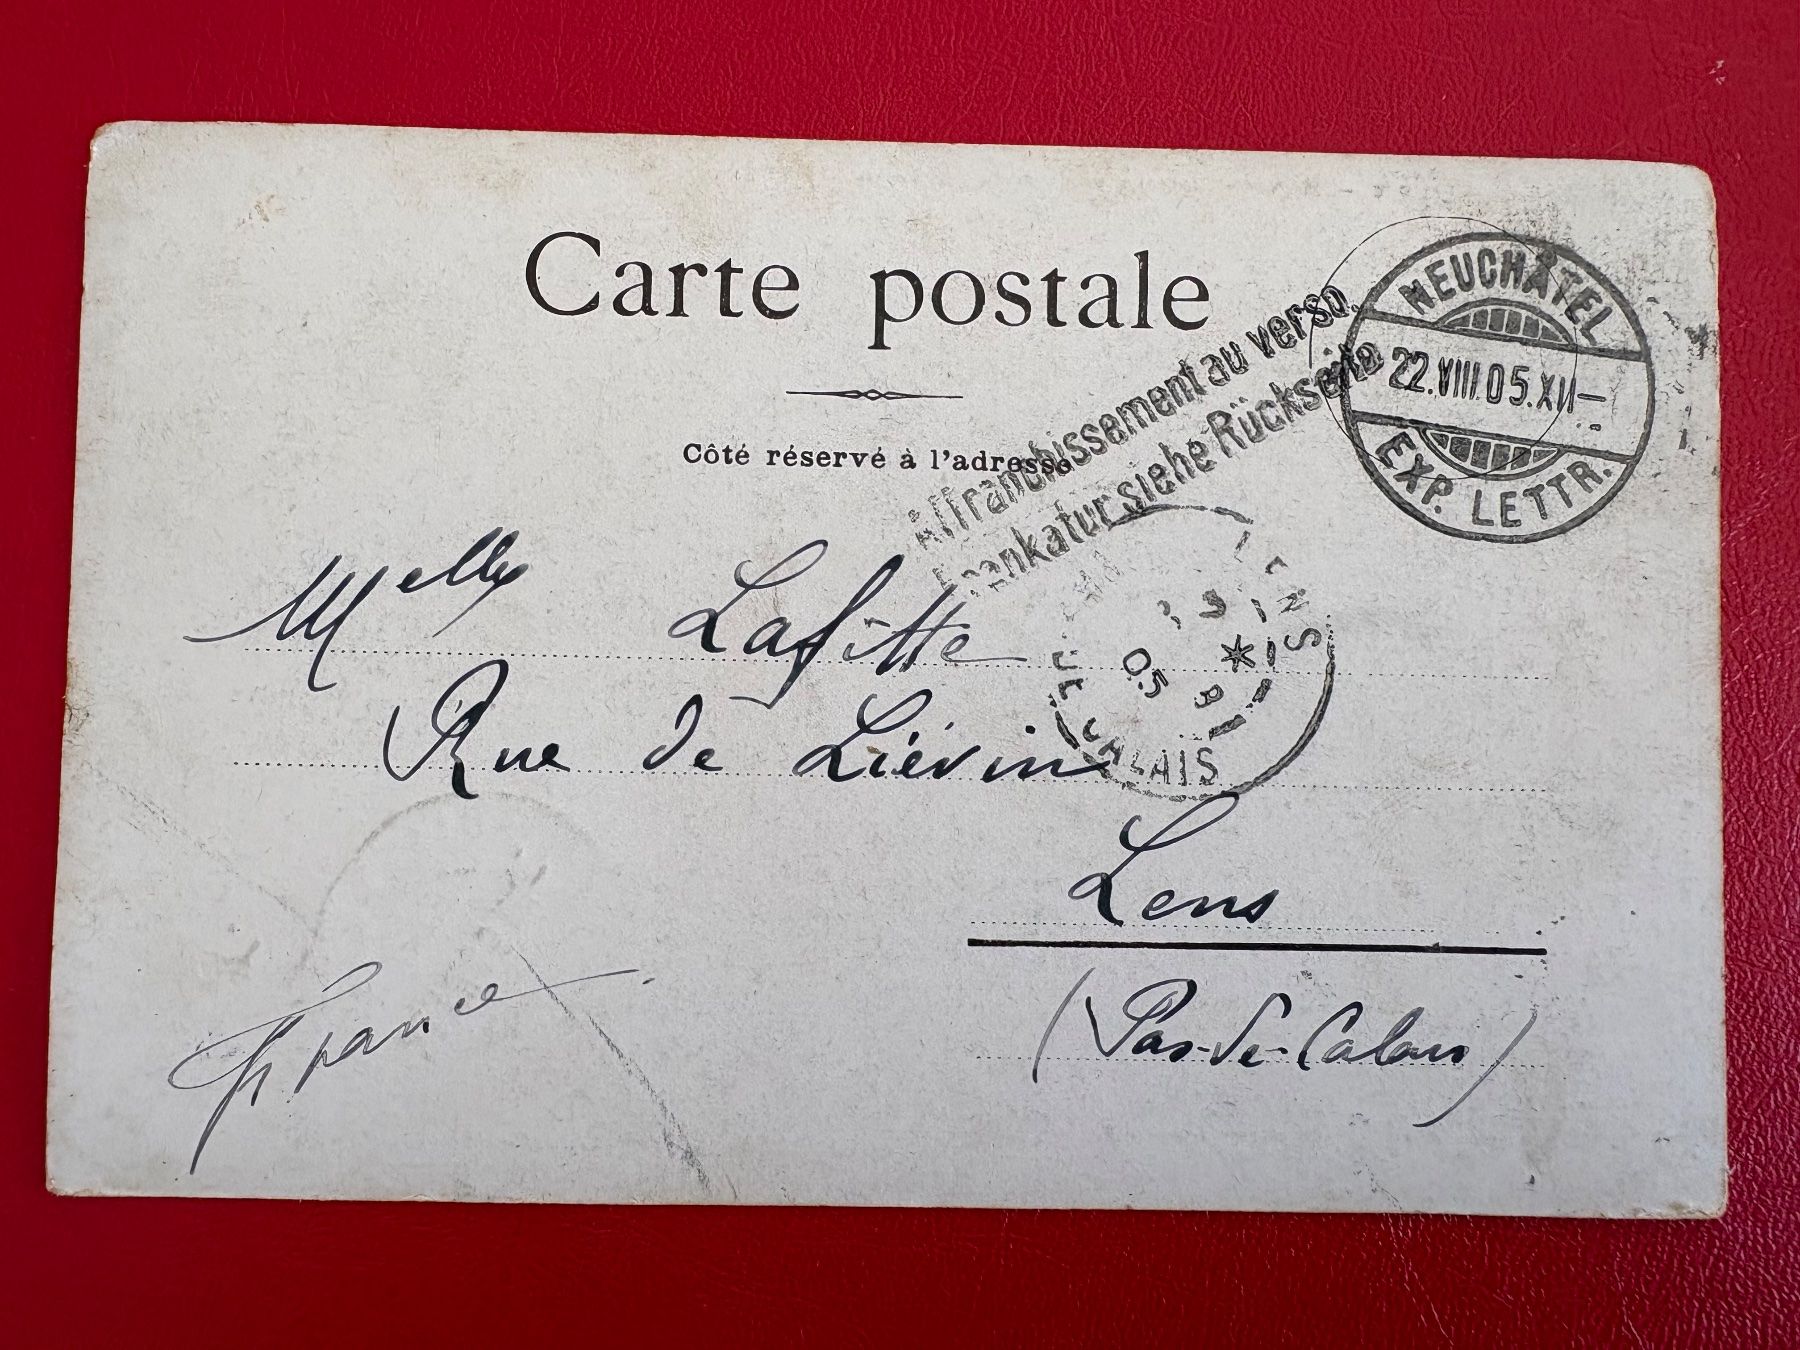 Carte postale
Affranchissement au verso.
Frankatur siehe Rückseite
NEUCHÂTEL
22.VIII.05.XII—
EXP. LETTR.
Côté réservé à l'adresse
LENS
8
05
CALAIS
Melles Lafitte
Rue de Liévin
Lens
(Pas-de-Calais)
France